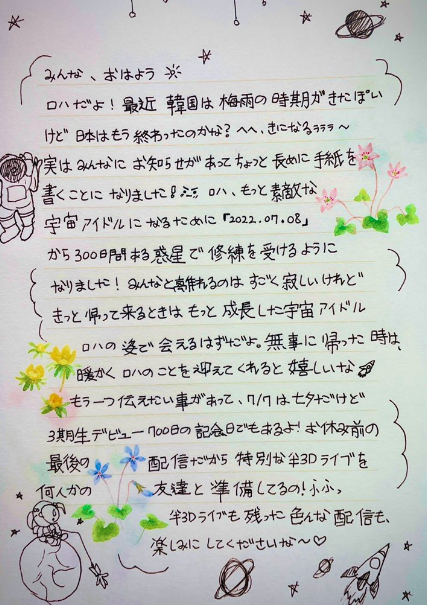 みんな、おはよう
ロハだよ！最近 韓国は梅雨の時期がきたぽい
けど 日本はもう終わったのかな？へへ、きになるラララ～
実は みんなに お知らせがあって ちょっと 長めに 手紙を
書くことに なりました！ ロハ、もっと 素敵な
宇宙アイドルに なるために「2022.07.08」
から 300日間 ある 惑星で 修練を 受けるように
なりました！みんなと 離れるのは すごく 寂しいけれど
きっと 帰って 来るときは もっと 成長した 宇宙アイドル
ロハの 姿で 会えるはずだよ。無事に 帰った 時は、
暖かく ロハのことを 迎えてくれると 嬉しいな
もう一つ 伝えたい 事があって、7/7 は 七夕だけど
3期生デビュー 700日の 記念日でもあるよ！お休み前の
最後の 配信だから 特別な 半3Dライブを
何人かの 友達と 準備してるの！ふふっ
半3Dライブも 残った 色んな 配信も、
楽しみに してくださいな～♡